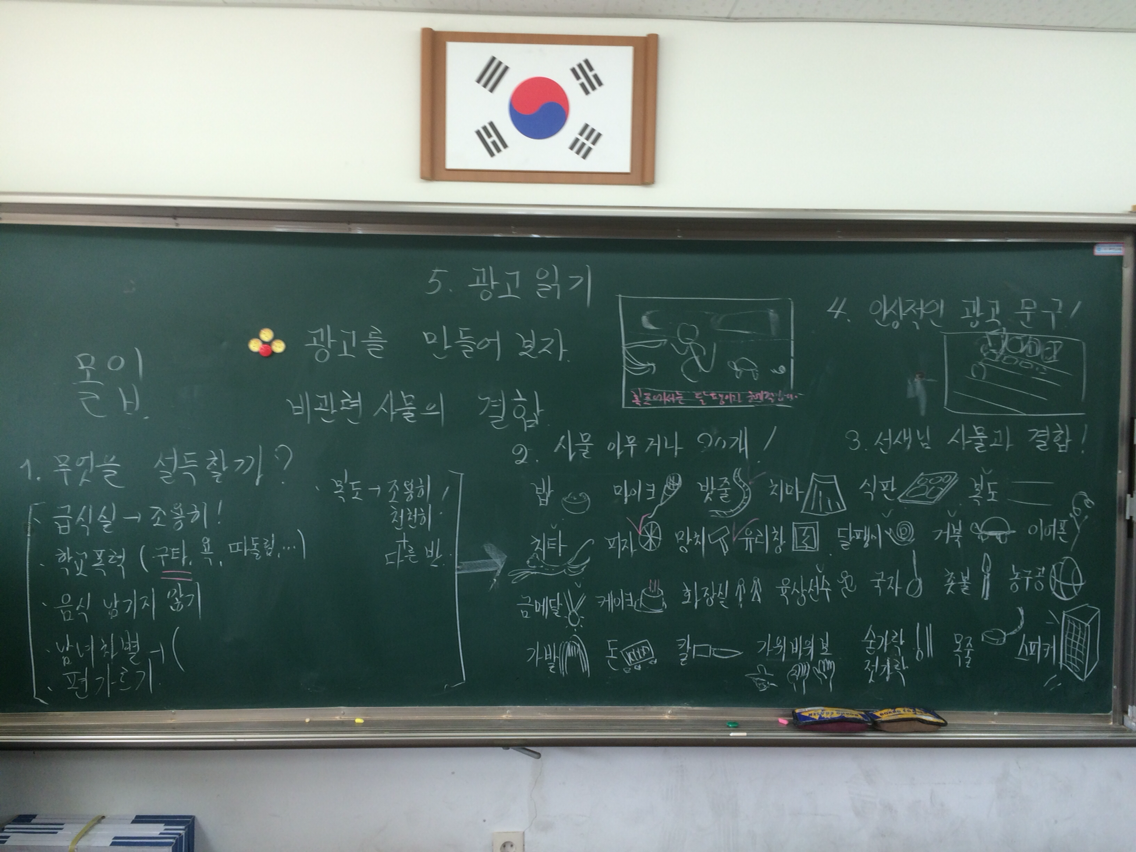 5. 광고 읽기
광고를 만들어 보자.
비관련 사물의 결합
1. 무엇을 설득할까?
· 급식실 → 조용히!
· 학교폭력 (구타, 욕, 따돌림,...)
· 음식 남기지 않기
· 남녀차별 → (
· 편가르기
· 복도 → 조용히!
천천히
+
다른 반
2. 사물 아무거나 20개!
밥 마이크 밧줄 치마 식판 복도
치타 피자 망치 유리창 달팽이 거북 이어폰
금메달 케이크 화장실 육상선수 국자 촛불 농구공
가발 돈 칼 가위바위보 숟가락 젓가락 목줄 스피커
3. 선생님 사물과 결합!
4. 인상적인 광고 문구!